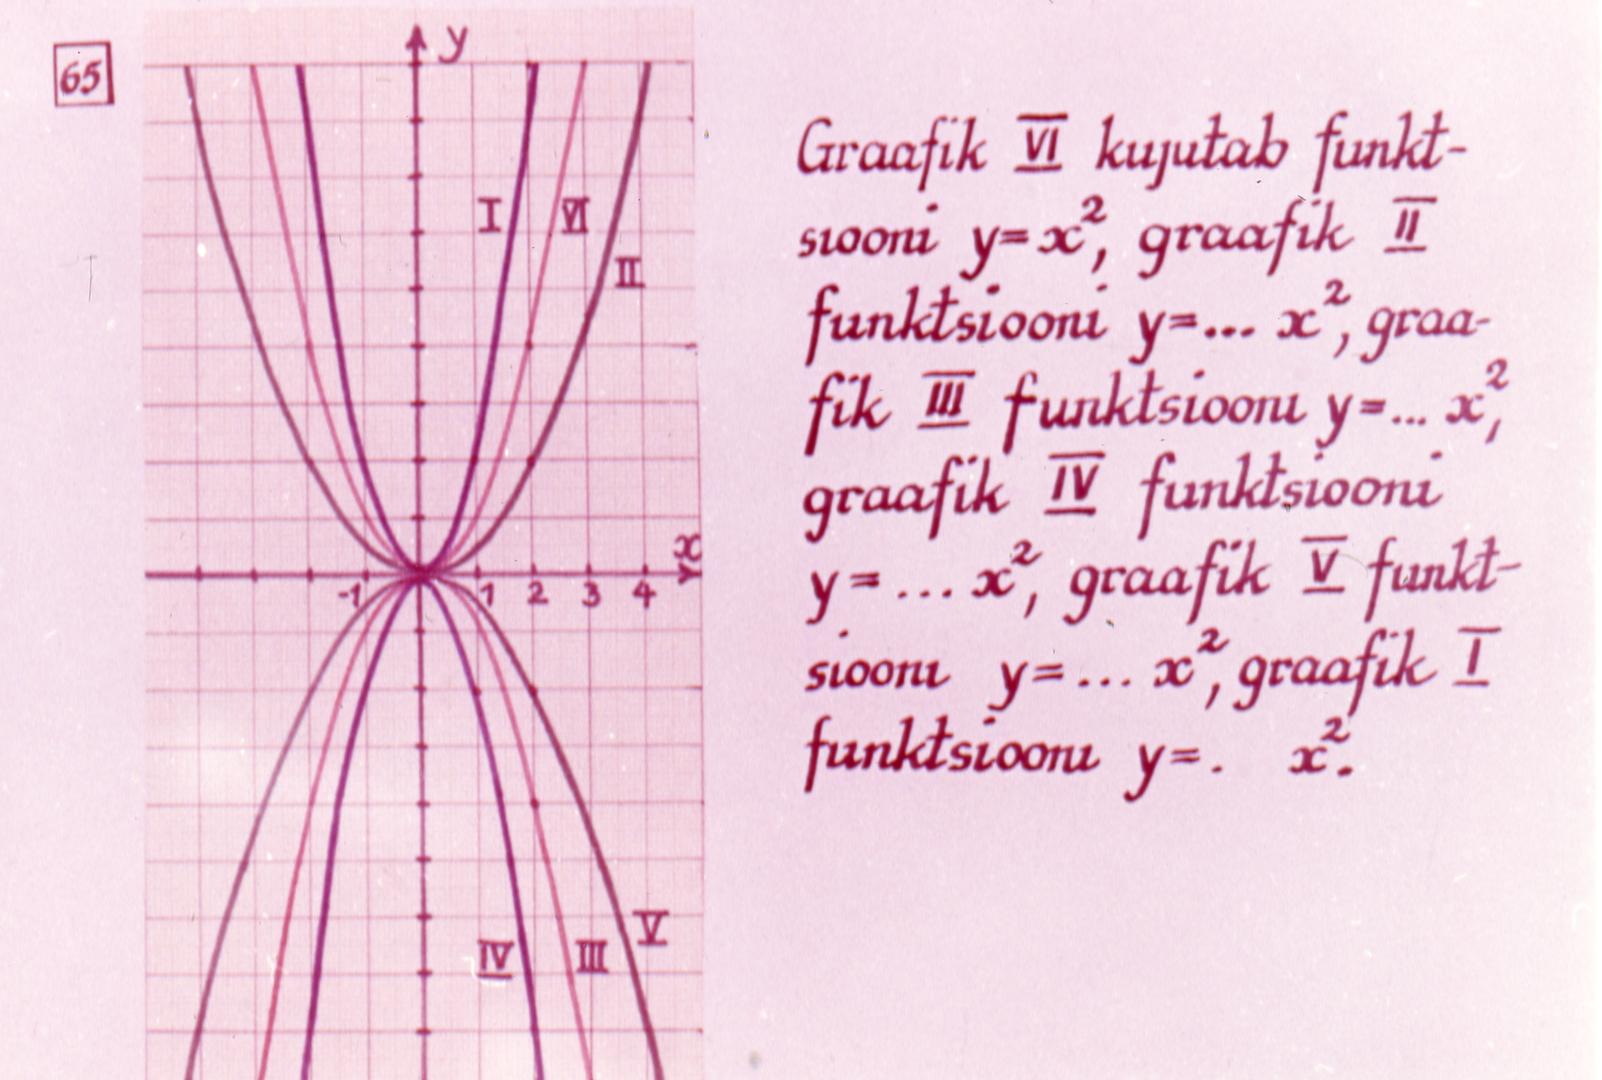 65
y
I
VI
II
x
-1 1 2 3 4
V
IV III
Graafik VI kujutab funkt-
siooni y=x², graafik II
funktsiooni y=... x², graa-
fik III funktsiooni y=... x²,
graafik IV funktsiooni
y=... x², graafik V funkt-
siooni y=... x², graafik I
funktsiooni y=. x².